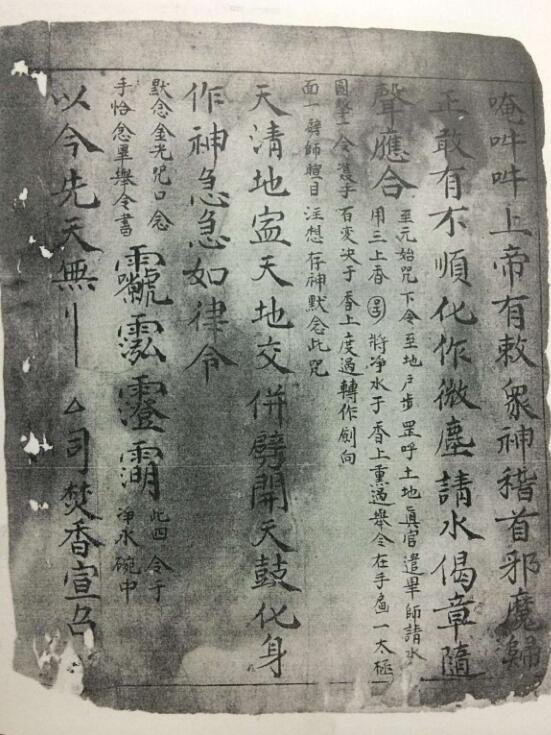 唵吽吽上帝有敕眾神稽首邪魔歸
正敢有不順化作微塵請水偈章隨
聲應合
至元始咒下令至地户步罡呼土地真官遣畢師請水
用三上香 將净水于香上熏過舉令在手画一太極
圓 令 手百变决于香上度過轉作劍向
面一劈師瞪目注想存神默念此咒
天清地寍天地交併劈開天鼓化身
作神急急如律令
默念金光咒口念
手恰念畢舉令書
泓澄
此四 令于
净水碗中
以今先天無 厶司焚香宣召